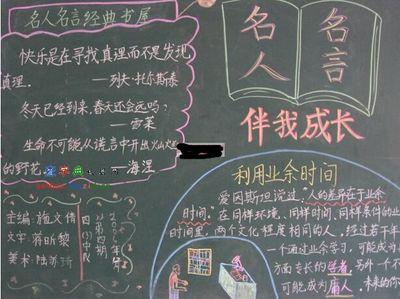 名人名言经典书屋
快乐是在寻找真理而不是发现
真理.
——列夫·托尔斯泰
冬天已经到来,春天还会远吗?
——雪莱
生命不可能从谎言中开出灿烂
的野花.
——海涅
主编:施文倩
文字:蒋昕黎
美术:陆苏琦
名人
名言
伴我成长
利用业余时间
爱因斯坦说过,"人的差异在于业余
时间."在同样环境,同样时间,同样条件的业
时间里,两个文化程度相同的人,经过若干年
一个通过业余学习,可能成为
方面专长的学者,另外一个不
可能成为庸人.未来的你